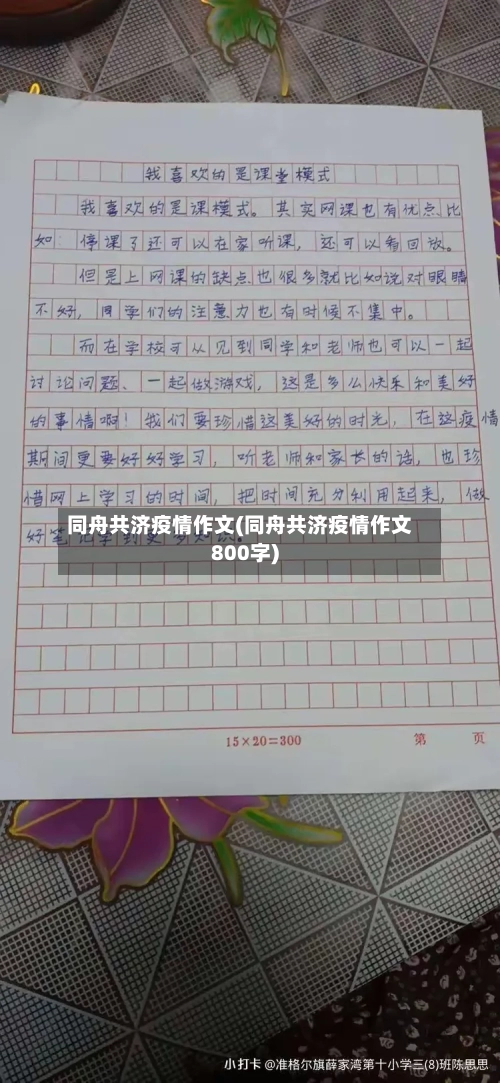 我喜欢的是课堂模式
我喜欢的是课模式。其实网课也有优点比
如:停课了还可以在家听课,还可以看回放。
但是上网课的缺点也很多就比如说对眼睛
不好,同学们的注意力也有时候不集中。
而在学校可以见到同学和老师也可以一起
讨论问题、一起做游戏,这是多么快乐和美好
的事情啊!我们要珍惜这美好的时光,在这疫情
期间更要好好学习,听老师和家长的话,也珍
惜网上学习的时间,把时间充分利用起来,做
好笔
同舟共济疫情作文(同舟共济疫情作文
800字)
15×20=300
第 页
小打卡 @准格尔旗薛家湾第十小学三(8)班陈思思